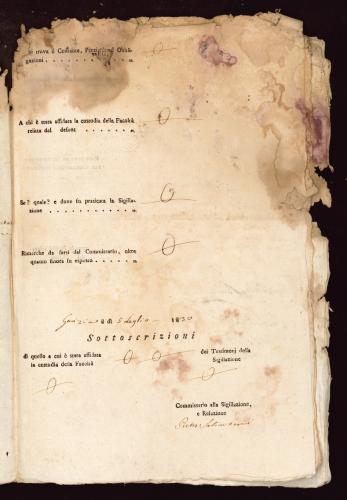 trova
gazioni . . . . . . . . . „
0
A chi è stata affidata la custodia della Facoltà
relitta dal defonto . . . . . . . „
0
Se? quale? e dove fu praticata la Sigilla-
zione . . . . . . . . . . „
0
Ricerche da farsi dal Commissario, oltre
quanto finora fu esposto . . . . . „
0
li 5 Luglio 1830
Sottoscrizioni
di quello a cui è stata affidata
la custodia della Facoltà
0 0
dei Testimonj della
Sigillazione
0
0
Commissario alla Sigillazione,
e Relazione